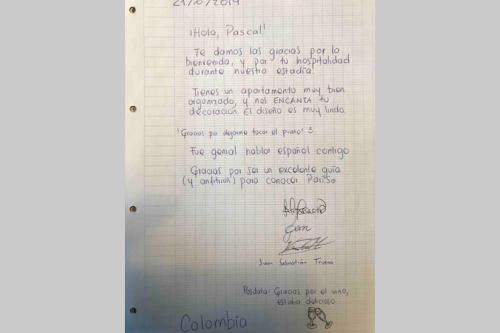 ¡Hola, Pascal!
Te damos las gracias por la
bienvenida, y por tu hospitalidad
durante nuestra estadía
Tienes un apartamento muy bien
organizado, y nos ENCANTA tu
decoración. El diseño es muy lindo.
¡Gracias por dejarme tocar el piano!
Fue genial hablar español contigo
Gracias por ser un excelente guía
(y anfitrión) para conocer París
Juan Sebastián
Posdata: Gracias por el vino,
estaba delicioso
Colombia